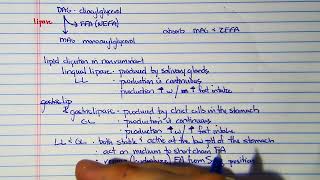 DAG - diacylglycerol
lipase FFA (NEFA) absorb MAG & 2FFA
MAG monoacylglycerol
lipid digestion in nonruminant
lingual lipase - produced by salivary glands
LL - production is continuous
- production ↑ w/ ↑ fat intake
gastric lip
gastric lipase - produced by chief cells in the stomach
GL - production is continuous
- production ↑ w/ ↑ fat intake
LL & GL - both stable & active at the low pH of the stomach
- act on medium to short chain FA
FA from position